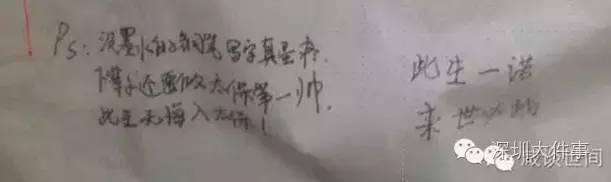 Ps: 没墨水的钢笔写字真蛋疼.
下辈子还要做太保第一帅,
此生无悔入太保!
此生一诺
来世必践
深圳大件事